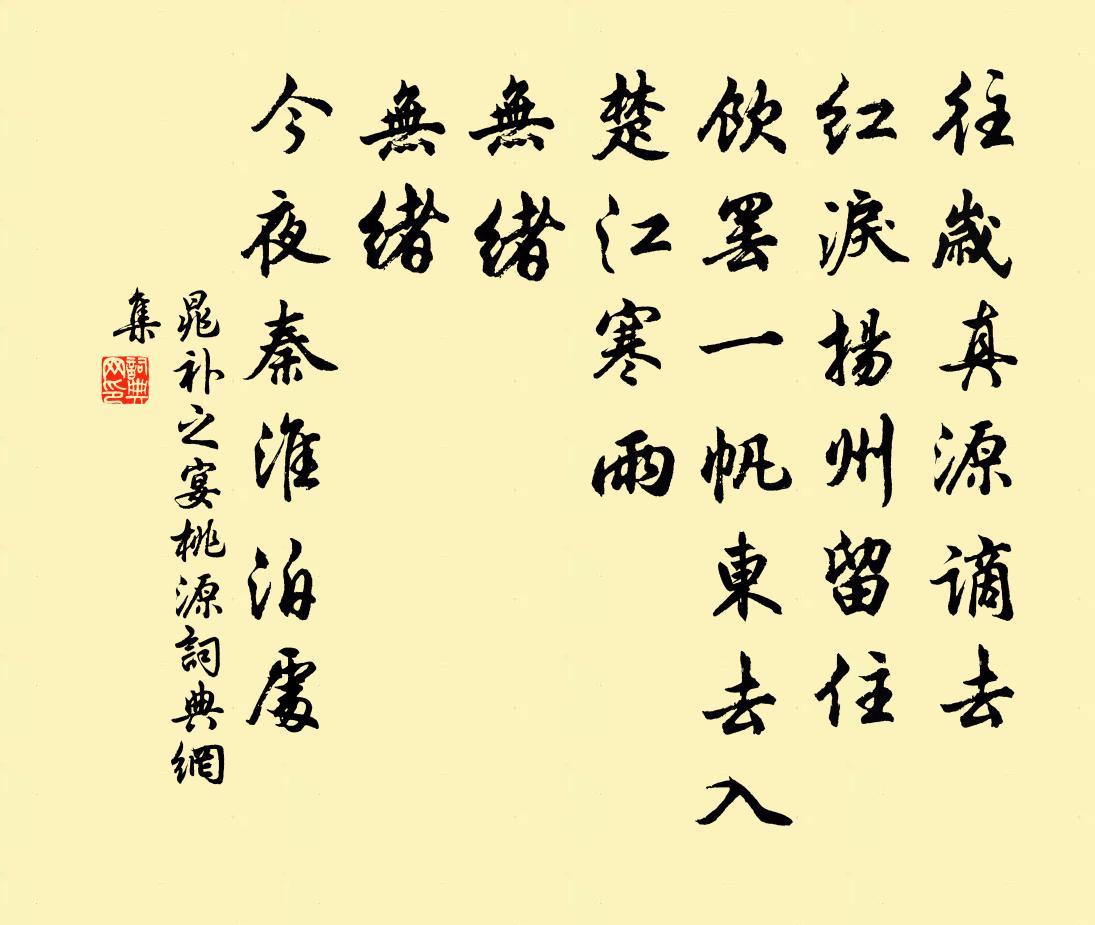 往歲真源謫去
紅淚揚州留住
飲罷一帆東去入
楚江寒雨
無緒
無緒
今夜秦淮泊處
晁补之宴桃源詞典網
集
詞典
网印